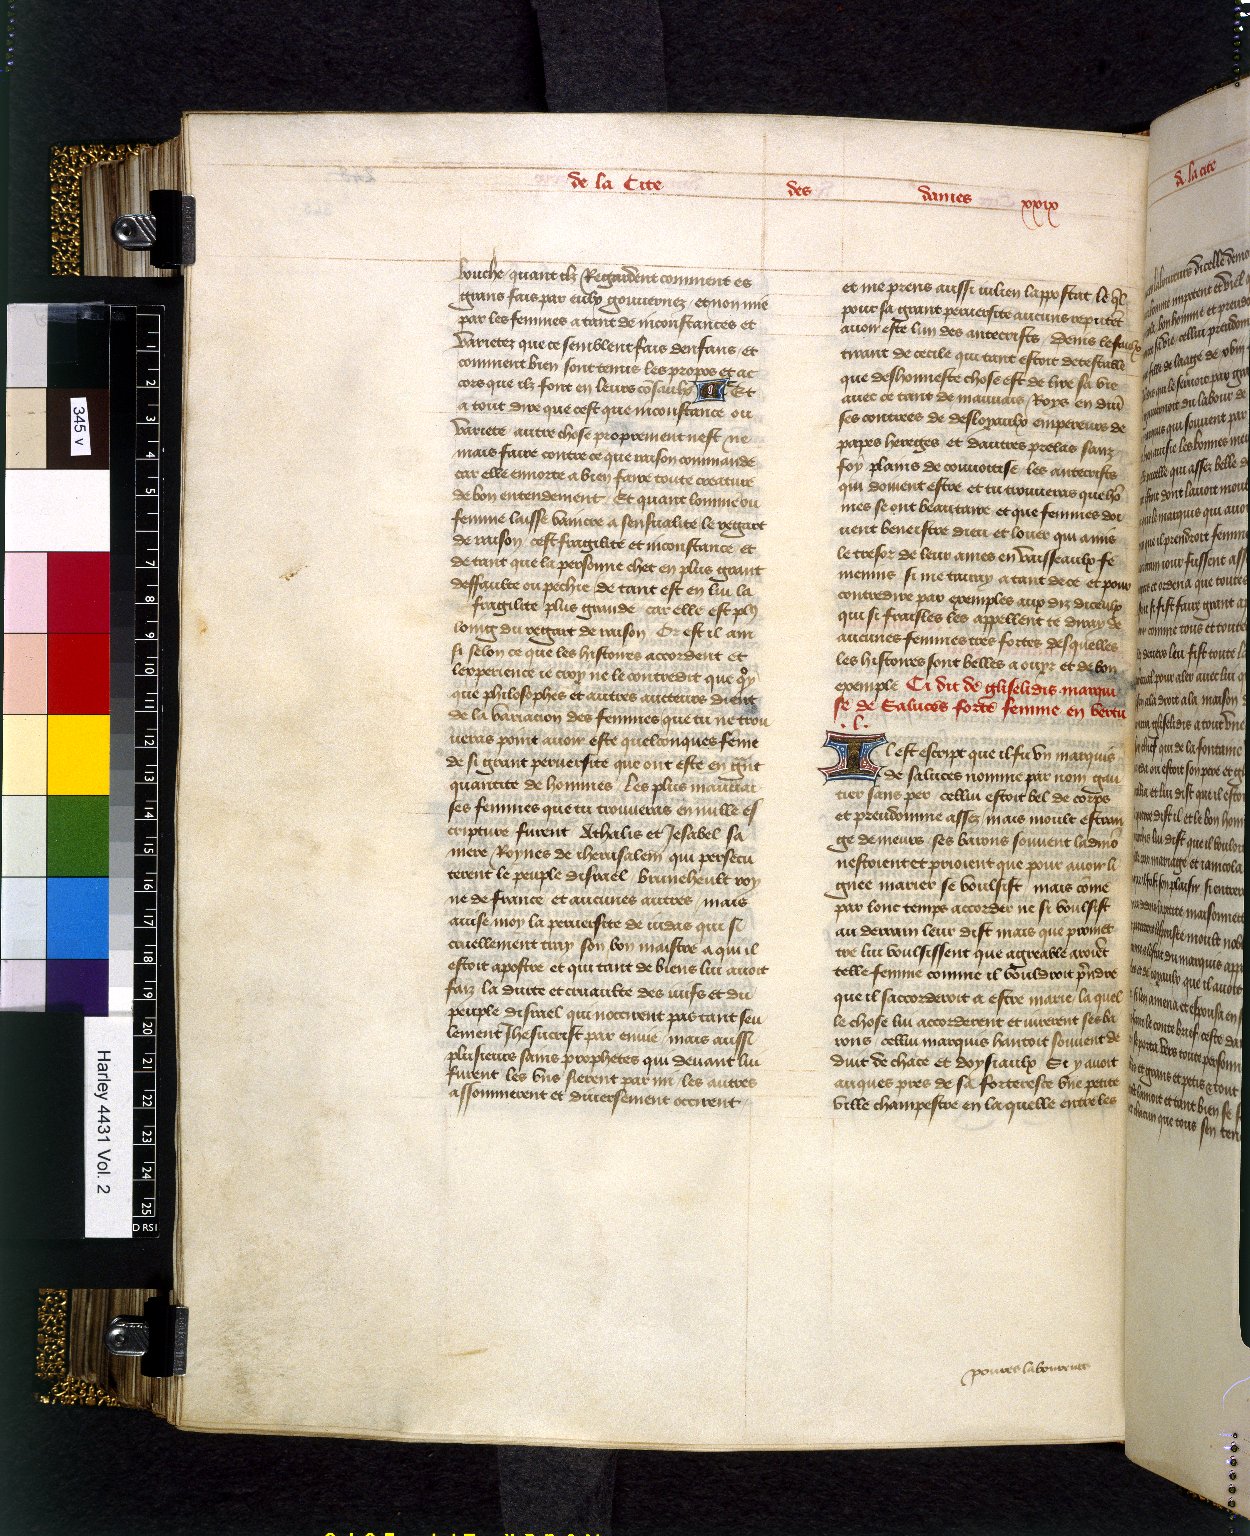 de la Cite des dames xxix
bouche quant ilz Regardent comment es
grans fais par eulx gouuernez et non mie
par les femmes a tant de inconstances et
varietez que ce semblent fais denfans et
comment bien sont tenus les propos et ac
cors que ilz font en leurs cōsaulx Et
a tout dire que cest que inconstance ou
variete autre chose proprement nest ne
mais faire contre ce que raison commande
car elle ennorte a bien faire toute creature
de bon entendement Et quant lomme ou
femme laisse vaincre a sensualite le regart
de raison cest fragilite et inconstance et
de tant que la personne chet en plus grant
deffaulte ou pechie de tant est en lui la
fragilite plus grande car elle est plus
loing du regart de raison Or est il ain
si selon ce que les histoires accordent et
lexperience ie croy ne le contredit que quoy
que philosophes et autres aucteurs dient
de la variacion des femmes que tu ne trou
ueras point auoir este quelconques feme
de si grant peruersite que ont este en grāt
quantite de hommes Les plus mauuai
ses femmes que tu trouueras en nulle es
cripture furent Athalis et Jesabel sa
mere Roynes de iherusalem qui persecu
terent le peuple disrael Bruneheult roy
ne de france et aucunes autres mais
auise moy la peruersite de iudas qui si
cruellement tray son bon maistre a qui il
estoit apostre et qui tant de biens lui auoit
faiz la durte et cruaulte des iuifs et du
peuple disrael qui noccirent pas tant seu
lement Jhesucrist par enuie mais aussi
plusieurs sains prophetes qui deuant lui
furent les vns sierent par mi les autres
assommerent et diuersement occirent
et me prens aussi iulien lappostat le q̄l
pour sa grant peruersite aucuns reputēt
auoir este lun des antecrists Denis le faulx
tirant de cecile qui tant estoit detestable
que deshonneste chose est de lire sa vie
auec ce tant de mauuais Roys en diu
ses contrees de desloyaulx empereurs de
papes hereges et dautres prelas sanz
foy plains de couuoitise les antecrists
qui doiuent estre et tu trouueras que hō
mes se ont beau taire et que femmes doi
uent beneistre dieu et louer qui a mis
le tresor de leur ames en vaisseaulx fe
menins si me tairay a tant de ce et pour
contredire par exemples aux diz diceulx
qui si fraisles les appellent te diray de
aucunes femmes tres fortes desquelles
les histoires sont belles a ouyr et de bon
exemple Ci dit de gliselidis marqui
se de Saluces forte femme en vertu
.l.
Il est escript que il fu vn marquis
de saluces nomme par nom gau
tier sans per cellui estoit bel de corps
et preudomme assez mais moult estran
ge de meurs ses barons souuent ladmō
nestoient et prioient que pour auoir li
gnee marier se voulsist mais cōme
par lonc temps accorder ne si voulsist
au derrain leur dist mais que promet
tre lui voulsissent que agreable aroiēt
telle femme comme il vouldroit prendre
que il saccorderoit a estre marie la quel
le chose lui accorderent et iurerent ses ba
rons cellui marquis hantoit souuent de
duit de chace et doysiaulx Et y auoit
auques pres de sa forteresce vne petite
ville champestre en laquelle entre les
poures laboureurs
de la cite
345 v
Harley 4431 Vol. 2
1
2
3
4
5
7
8
9
10
11
12
13
14
15
16
17
18
19
20
21
22
23
24
25